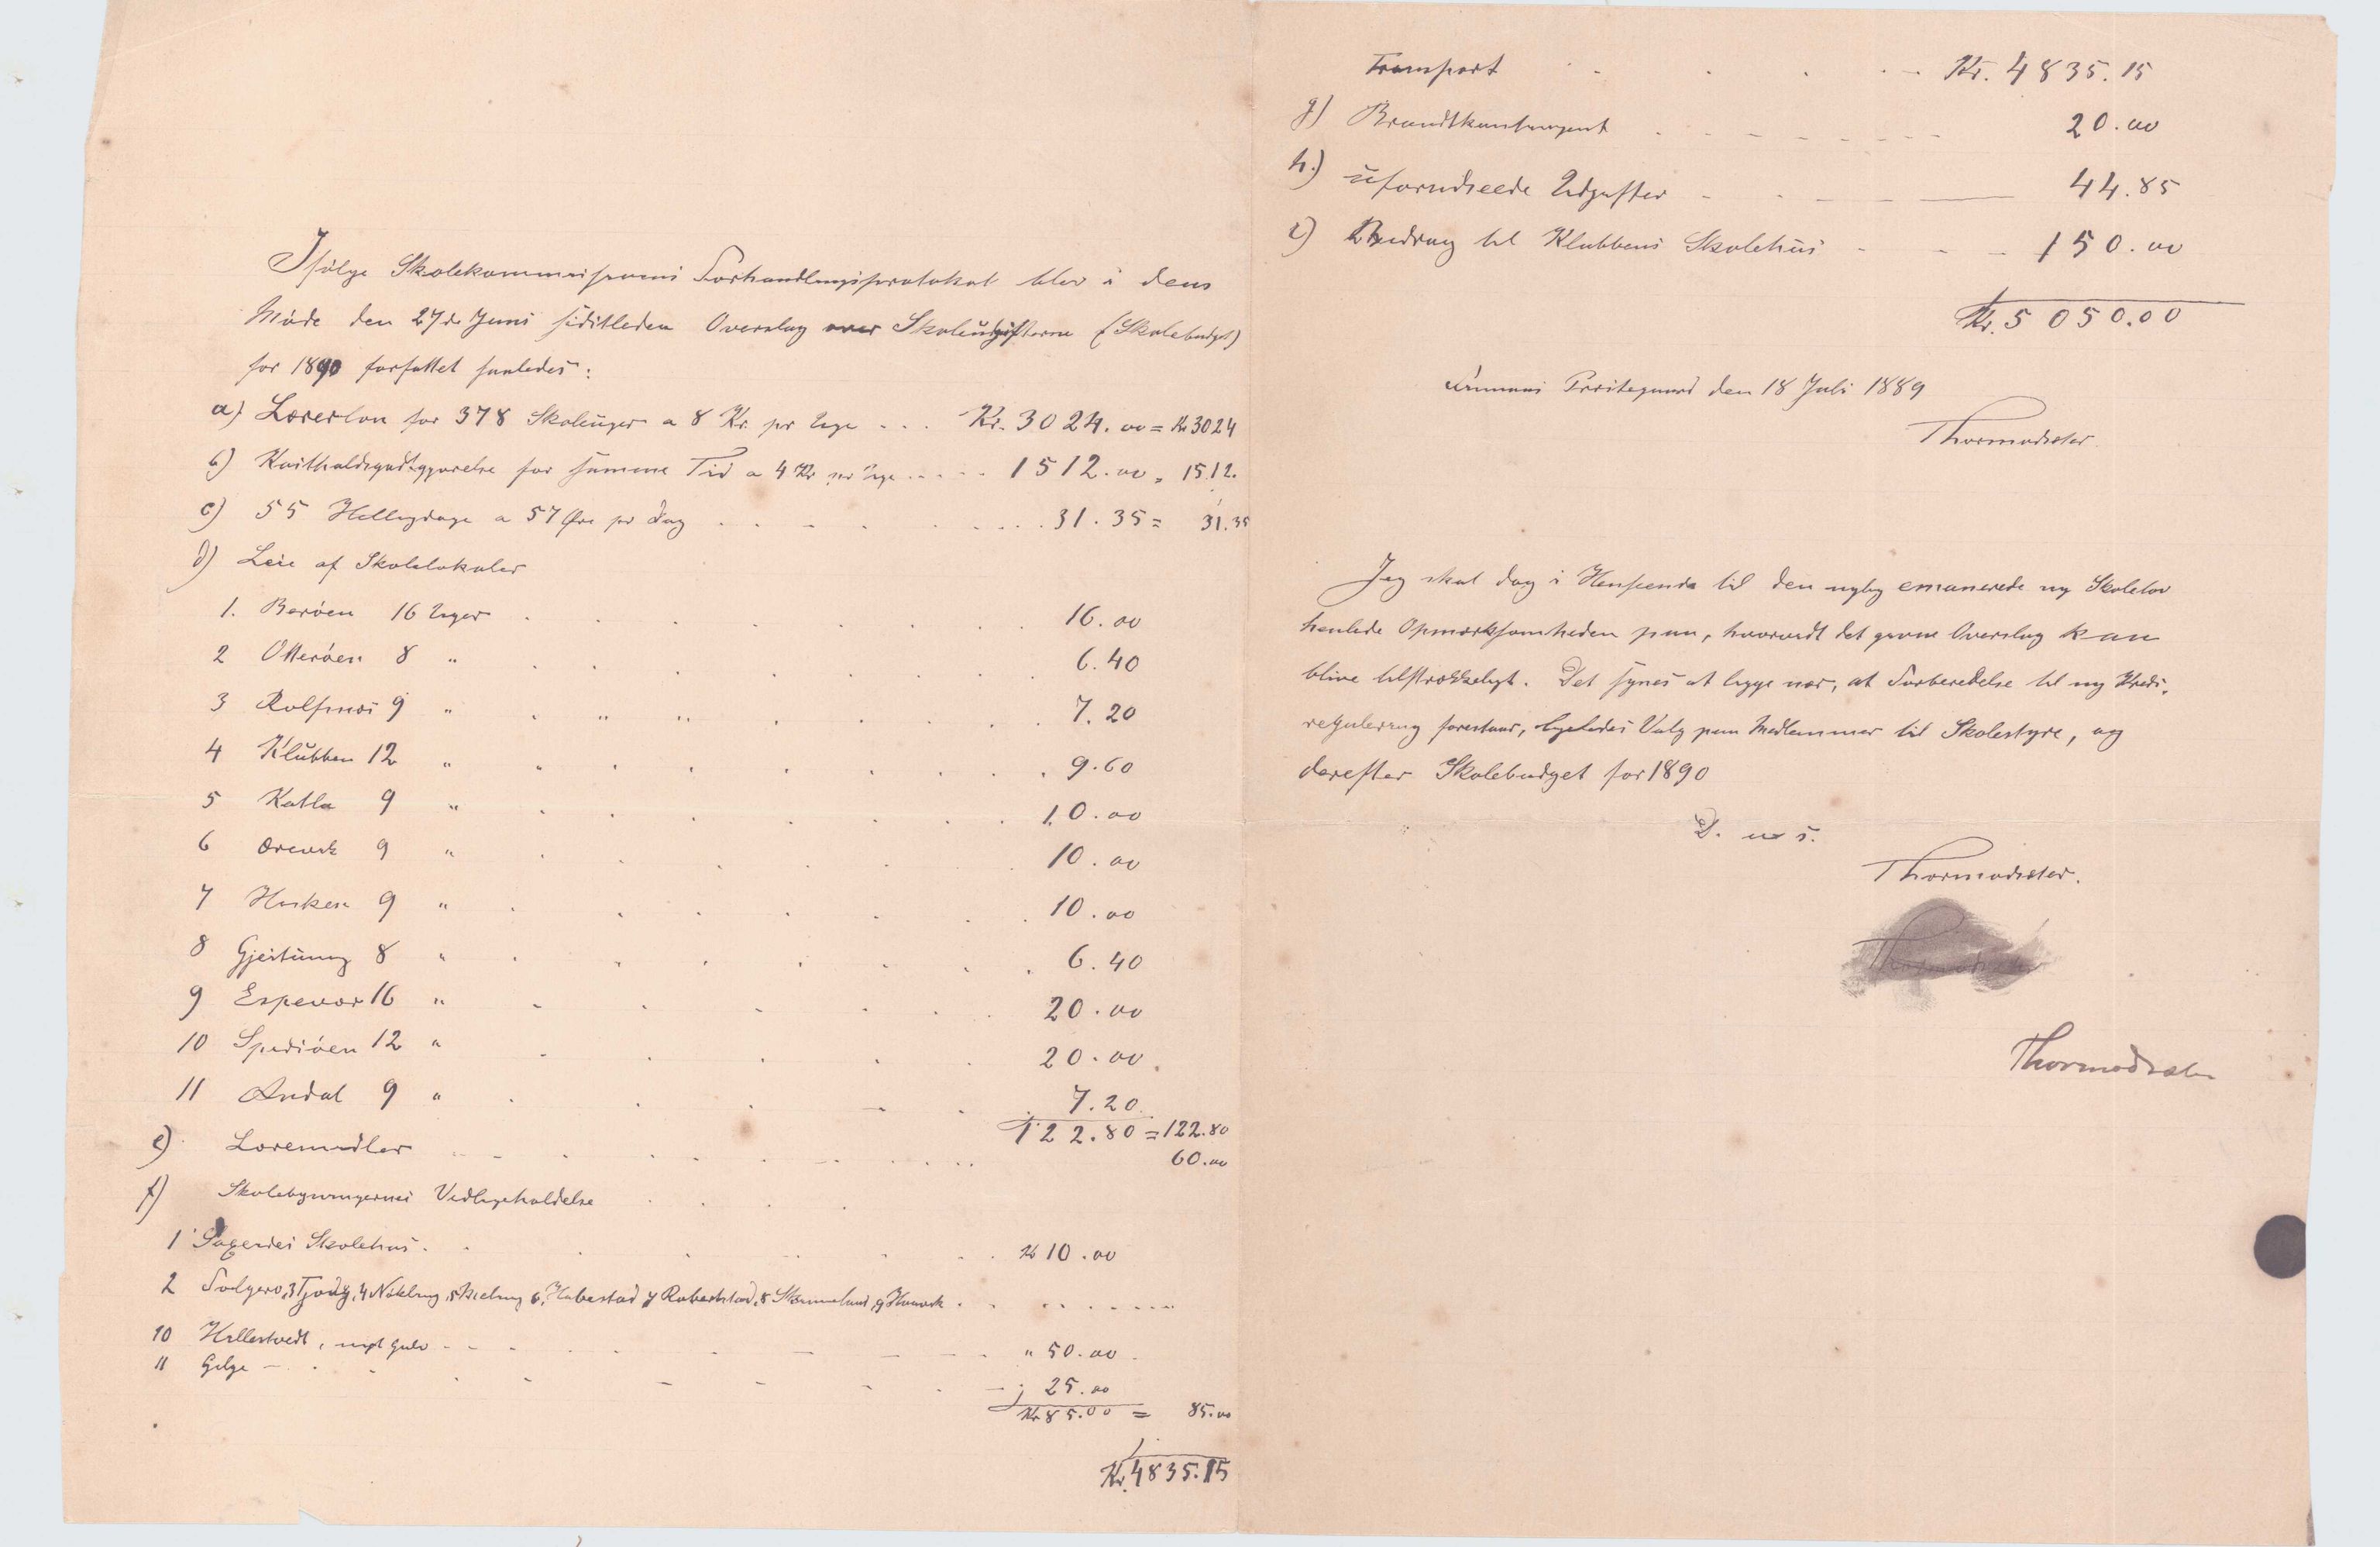 Ifølge Skolekommissionens Forhandlingsprotokol blev i dens
Møde den 27de Juni sidstleden Overslag over Skoleudgifterne (Skolebudget)
for 1890 forfattet saaledes:
a) Lærerløn for 378 Skoleuger a 8 Kr. pr Uge . . . Kr. 3024.00 = Kr 3024
b) Kostholdsgodtgjørelse for samme Tid a 4 Kr pr Uge . . . . . 1512.00 " 1512.
c) 55 Helligdage a 57 Øre pr Dag . . . . . . . . 31.35 = 31.35
d) Leie af Skolelokaler
1. Børøen 16 Uger . . . . . . . 16.00
2 Otterøen 8 " . . . . . . . 6.40
3 Rolfsnæs 9 " . " " . . . . 7.20
4 Klubben 12 " . . . . . . . 9.60
5 Katla 9 " . . . . . . . 10.00
6 9 " . . . . . . 10.00
7 Hisken 9 " . . . . . . 10.00
8 Gjeitung 8 " . . . . . . . 6.40
9 Espevær 16 " . . . . . . 20.00
10 12 " . . . . . 20.00.
11 9 " . . . . . . 7.20
122.80 = 122.80
e) Læremidler . . . . . . . . . . . 60.00
f) Skolebygningernes Vedligeholdelse . . . .
1 Skolehus . . . . . . . Kr 10.00
2 3 4 Nøkling, 5 6, Habestad 7 8 9 . . . . . . . .
10 Hellestvedt, nyt Gulv - - - . . - - - . " 50.00.
11 - . . . . - - . . - 25.00
Kr 85.00 = 85.00
Kr. 4835.15
Transport . . . . . - Kr. 4835.15
g) Brandtkontingent . - - - - - - 20.00
h.) uforudseede Udgifter - - . - 44.85
i) Bidrag til Klubbens Skolehus - - - 150.00
Kr. 5050.00
Finnaas Prestegaard den 18 Juli 1889
Thormodsæter.
Jeg skal dog i Henseende til den nylig emanerede ny Skolelov
henlede Opmærksomheden paa, hvorvidt det givne Overslag kan
blive tilstrækkeligt. Det synes at ligge nær, at Forberedelse til ny Kreds-
regulering forestaar, ligeledes Valg paa Medlemmer til Skolestyre, og
derefter Skolebudget for 1890
D. u s.
Thormodsæter.
Thormodsæter
Thormodsæter